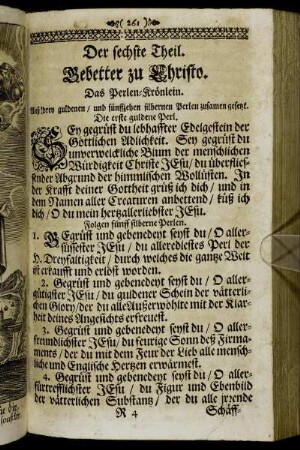 ( 261 )
Der sechste Theil.
Gebetter zu Christo.
Das Perlen-Krönlein.
Auß dreyen guldenen / und fünffzehen silbernen Perlen zusamen gesetzt.
Die erste guldene Perl.
SEy gegrüst du lebhaffter Edelgestein der
Göttlichen Adlichkeit. Sey gegrüst du
unverwelckliche Blum der menschlichen
Würdigkeit Christe JEsu / du überflies-
sender Abgrund der himmlischen Wollüsten. In
der Krafft deiner Gottheit grüß ich dich / und in
dem Namen aller Creaturen anbettend / küß ich
dich / O du mein hertzallerliebster JEsu.
Folgen fünff silberne Perlen.
1. BEgrüst und gebenedeyt seyst du / O aller-
süssester JEsu / du alleredlestes Perl der
H. Dreyfaltigkeit / durch welches die gantze Welt
ist erkaufft und erlöst worden.
2. Gegrüst und gebenedeyt seyst du / O aller-
gütigster JEsu / du guldener Schein der vätterli-
chen Glory / der du alle Außerwöhlte mit der Klar-
heit deines Angesichts erfreuest.
3. Gegrüst und gebenedeyt seyst du / O aller-
freundlichster JEsu / du feurige Sonn deß Firma-
ments / der du mit dem Feur der Lieb alle mensch-
liche und Englische Hertzen erwärmest.
4. Gegrüst und gebenedeyt seyst du / O aller-
fürtrefflichster JEsu / du Figur und Ebenbild
der vätterlichen Substantz / der du alle
R 4 Schäff-